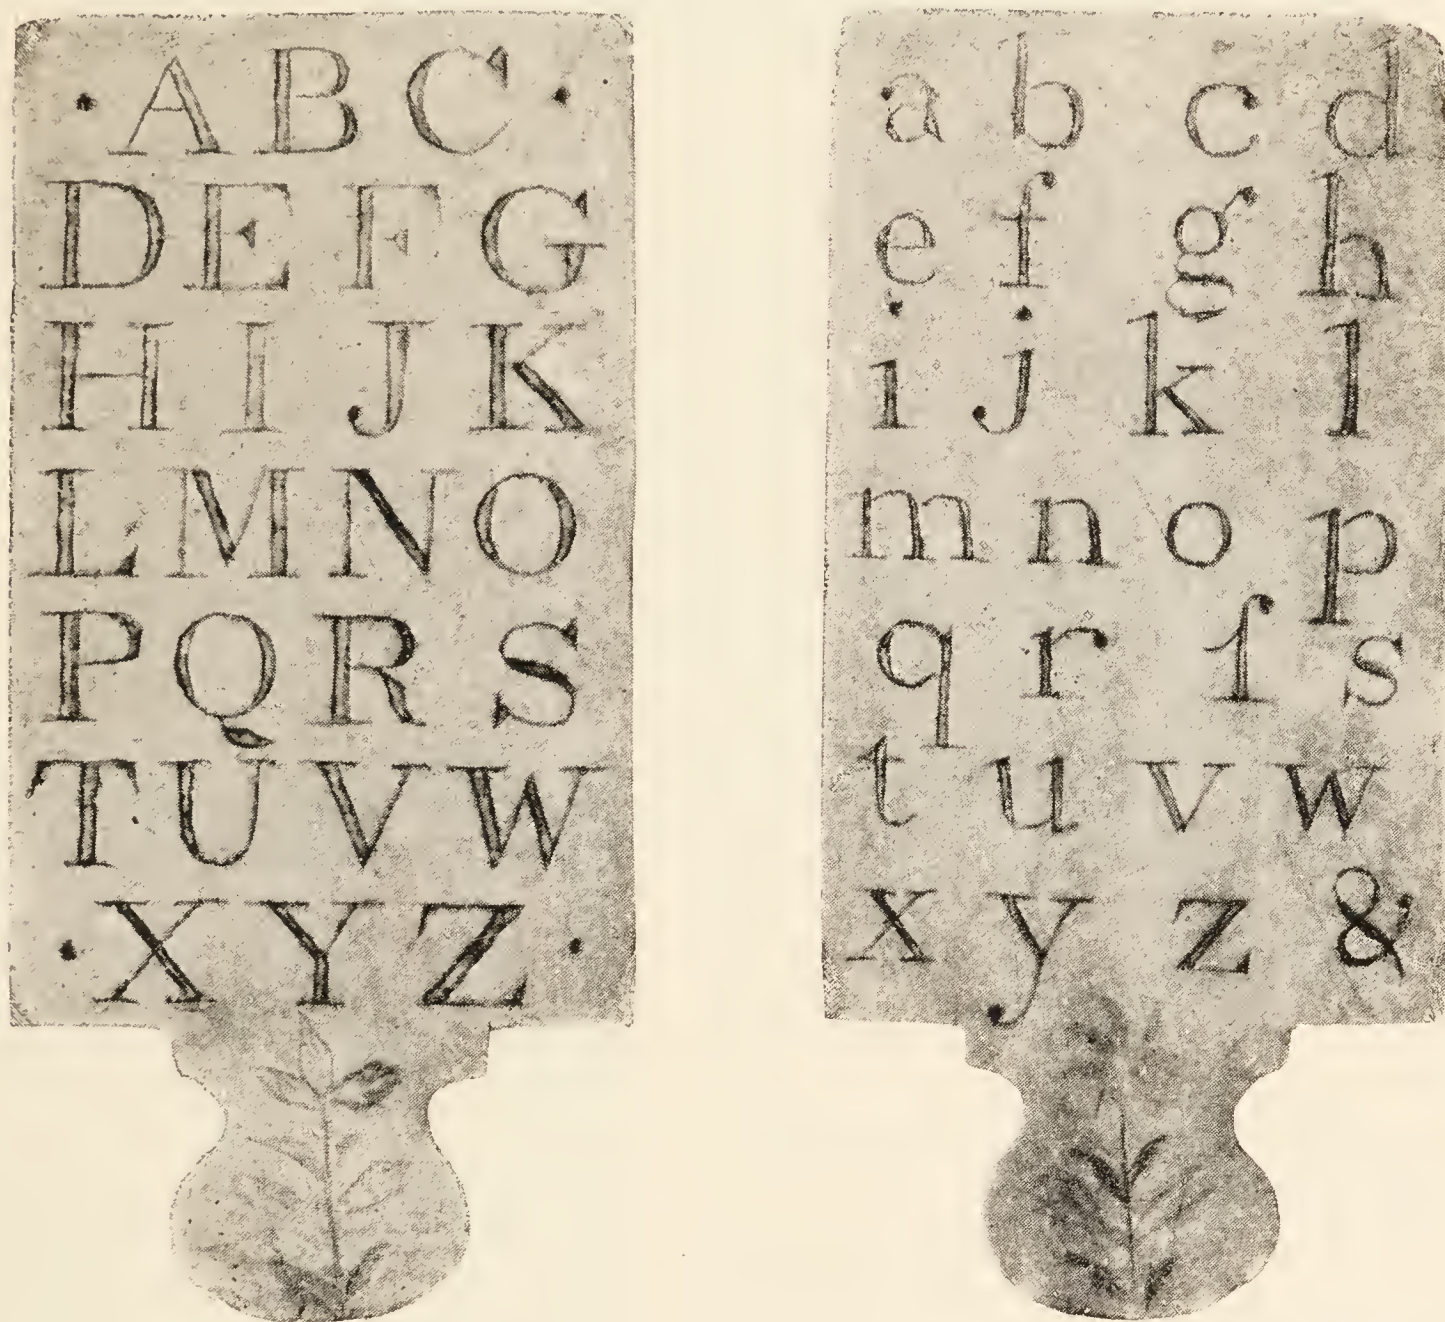 · A B C ·
D E F G
H I J K
L M N O
P Q R S
T U V W
· X Y Z ·
a b c d
e f g h
i j k l
m n o p
q r ſ s
t u v w
x y z &